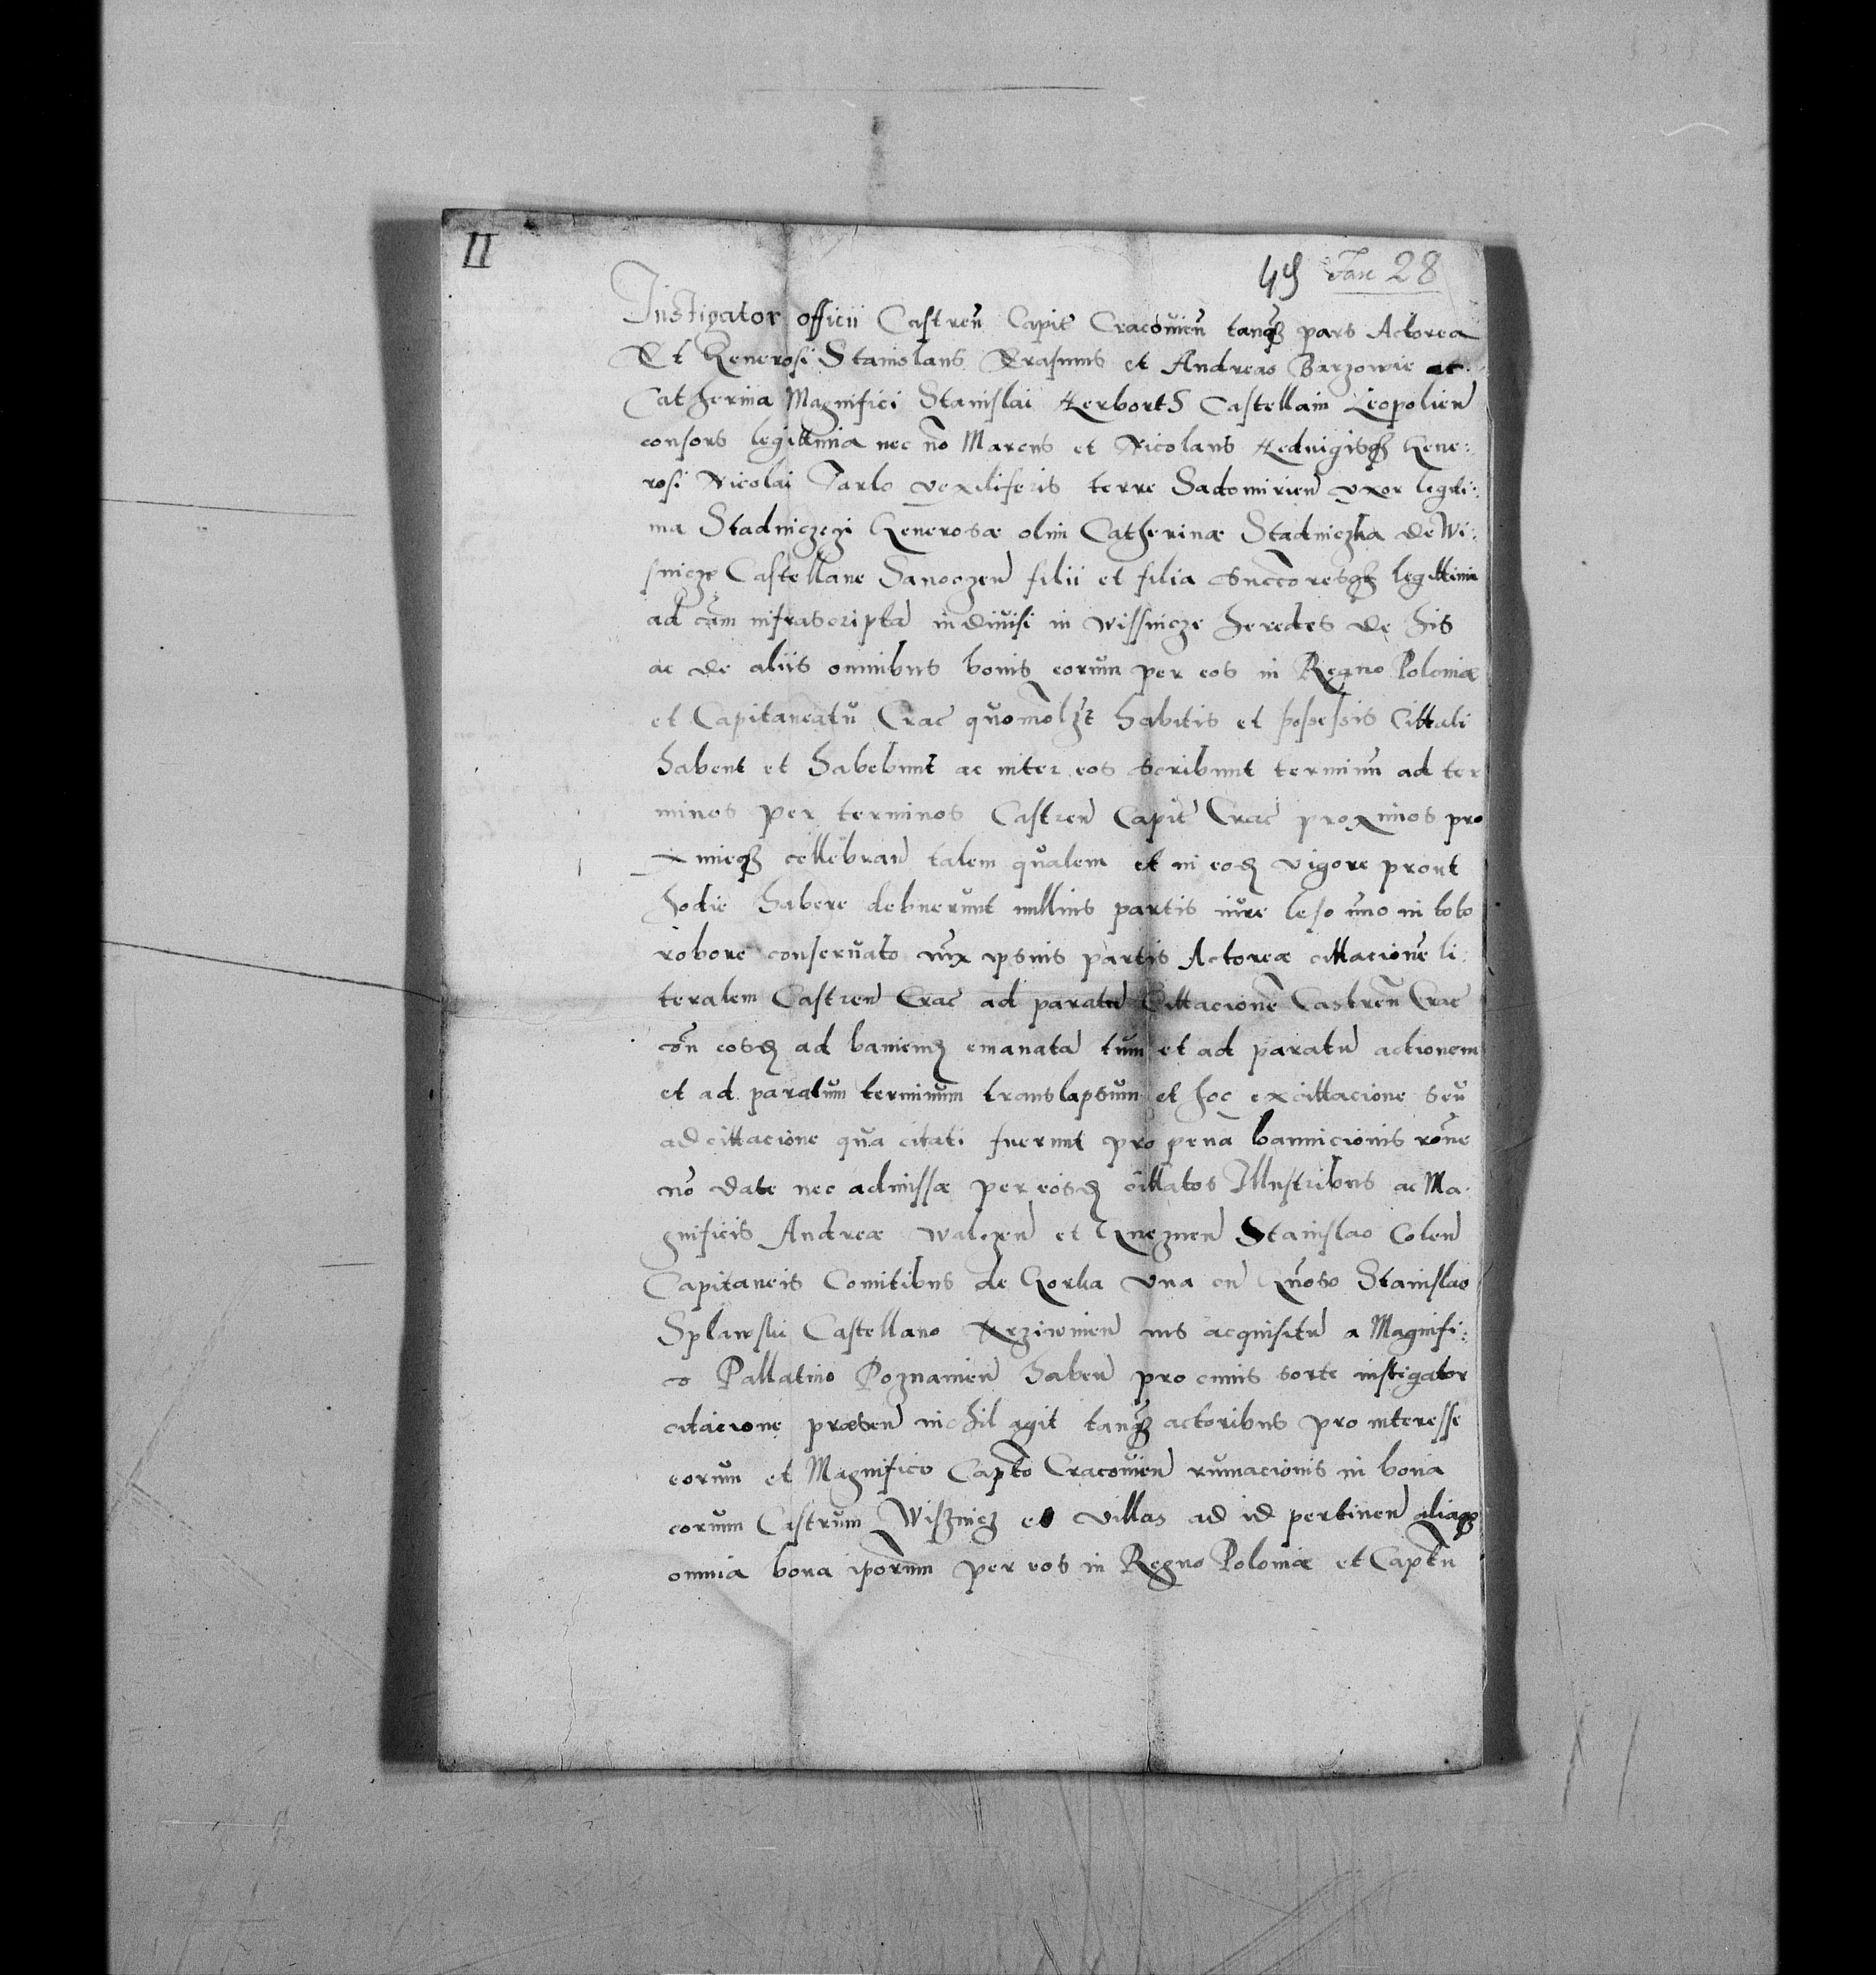 II
49 Fasc 28
Instigator officii Castren Capit Cracovien tanqz pars Actorea
Et Generosi Stanislaus Erasmus et Andreas Barzowie ac
Catherina Magnifici Stanislai Herborth Castellani Leopolien
consors legittima nec no Marcus et Nicolaus Heduigisqz Gene:
rosi Nicolai Tarlo vexiliferis terre Sadomirien vxor legitti:
ma Stadniczegi Generosæ olim Catherinæ Stadniczka de Wi:
snicze Castellane Sanoczen filii et filia succoresqz legittimi
ad cam infrascripta indiuisi in wissnicze heredes de his
ac de aliis omnibus bonis eorum per eos in Regno Poloniæ
et Capitaneatu Crac quomolzt habitis et possessis Cittati
habent et habebunt ac inter eos scribunt terminu ad ter
minos per terminos Castren Capit Crac proximos pro
ximeqz cellebran talem qualem et in eod vigore prout
hodie habere debuerunt nullius partis iure leso imo in toto
robore conseruato iux ipsius partis Actoreæ cittacione li:
teralem Castren Crac ad paratu Cittacione Castren Crac
con eosd ad baniend emanata tum et ad paratu actionem
et ad paratum terminum translapsum et hoc excittacione seu
adcittacione qua citati fuerunt pro pena bannicionis rone
no date nec admissæ per eosd cittatos Illustribus ac Ma:
gnificis Andreæ walczen et Gneznen Stanislao Colen
Capitaneis Comitibus de Gorka vna cu Gnoso Stanislao
Splawski Castellano Krziwinen ius acquisitu a Magnifi:
co Pallatino Poznanien haben pro cuius sorte instigator
citacione præsen nichil agit tanqz actoribus pro interesse
eorum et Magnifico Capto Cracovien rumacionis in bona
eorum Castrum Wisznicz et villas ad id pertinen aliaqz
omnia bona iporum per eos in Regno Poloniæ et Captu